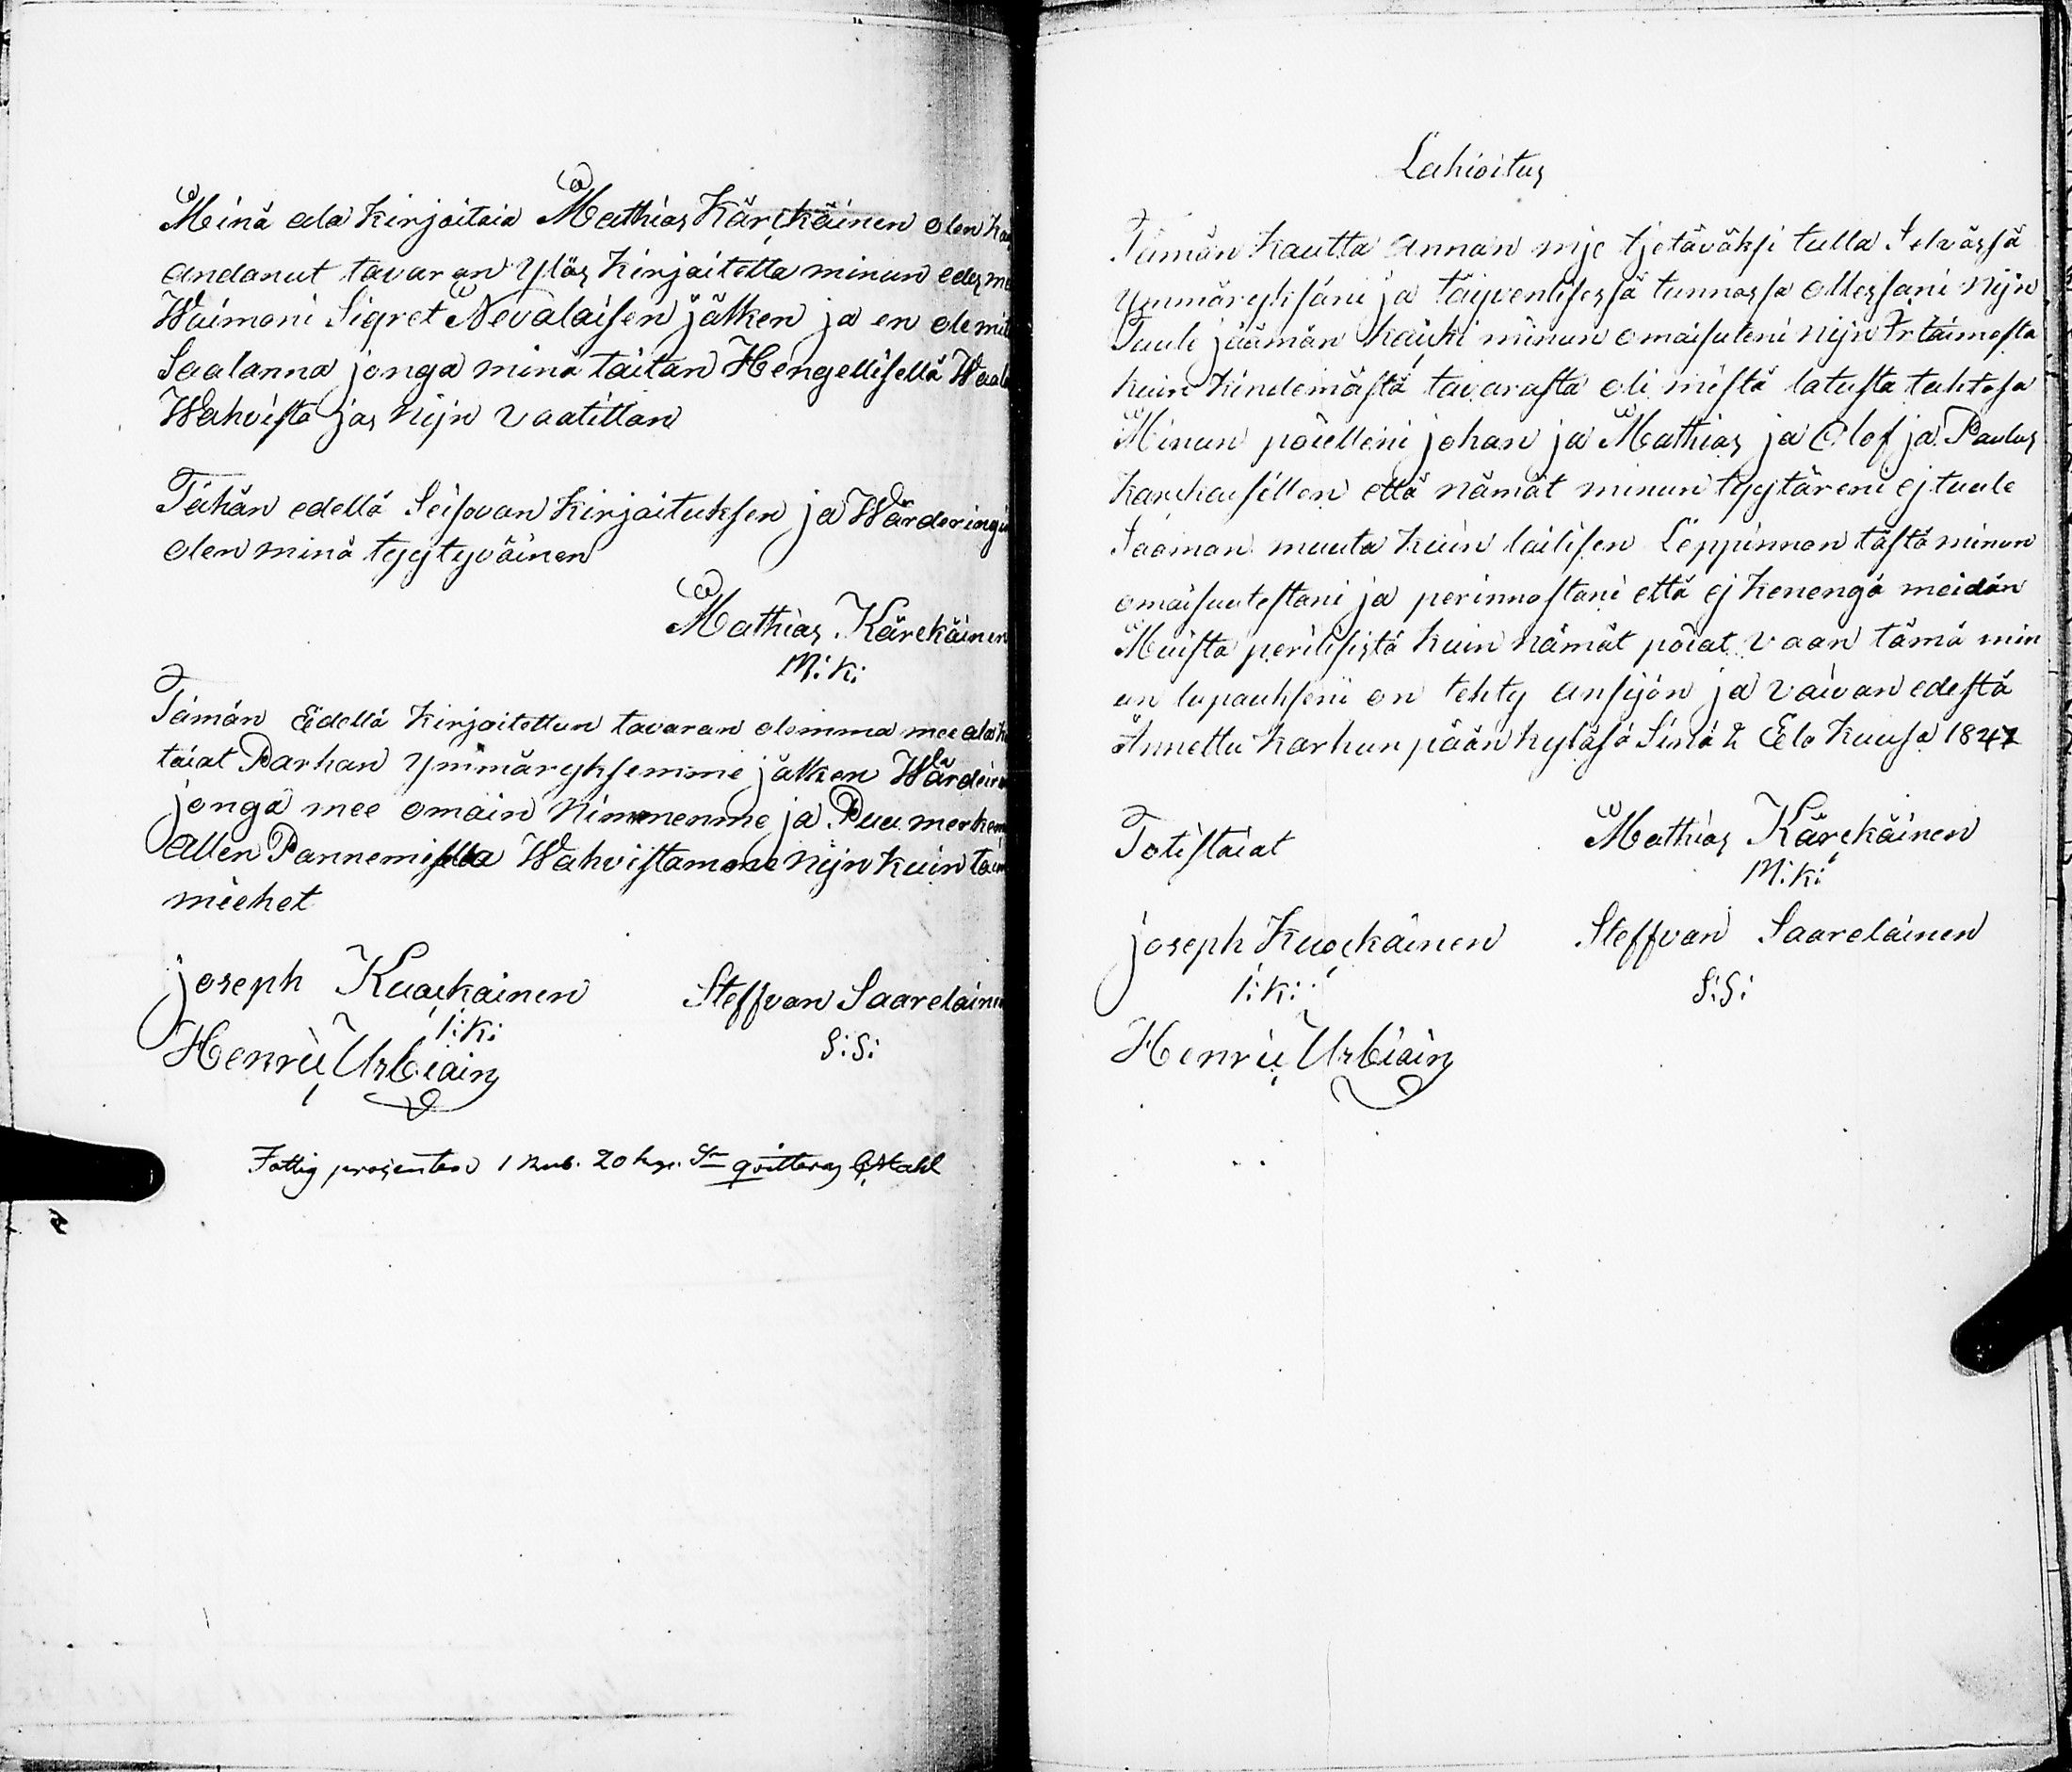 Meinä ala kirjoitaia Mathias Kärckäinen olen
andanut tavaran ylös kirjoitetta minun edes
Waimoni Sigret Nevalaisen jälken ja en ole
Saalanna jonga minä taitan Hengellisellä
Wahvista jos nijn vaatittan
Tähän edellä Seisovan Kirjoituksen ja Wärderingin
olen minä tyytyväinen
Mathias Kärckäinen
M:K:
Tämän Edellä Kirjoitettun tavaran olemma mee ala
täiat Parhan ymmäryksemme jälken
jonga mee omain Nimmenme ja Puu merkem
allen Pannemisella Wahvistamme Nijn kuin
miehet
joseph Kuockainen
I:K:
Steffvan Saarelainen
S:S:
Henric Urbiain
Fattig prosenten 1 Rub. 20 kop. Sr qvitteras Stahl
Lahioitus
Tämän Kautta Annan mije tjetäväksi tulla Selvässä
ymmärykssäni ja täyvenlisessä tunnossa ollessani Nijn
Tuule jäämän kaicki minun omaisuteni Nijn Irtaimesta
kuin kindemästä tavarasta oli mistä latusta tahtosa
Minun poiclleni johan ja Mathias ja Olof ja Paulus
Karckaisillen että nämät minun tyytäreni ej tuule
Sääman muuta kuin lailisen Löppinnon tästä minun
omaisuutestani ja perinnostani että ej kenengä meidän
Muista perilisistä kuin nämät poiat vaan tämä min
un lupaukseni on tehty ansijon ja vaivan edestä
Annettu Karhun pään kyläsä Sinä 2 Elo Kuusa 1847
Totistaiat
Mathias Kärckäinen
M:K:
joseph Kuockäinen
I:K:
Steffvan Saareläinen
S:S:
Henric Urbiain